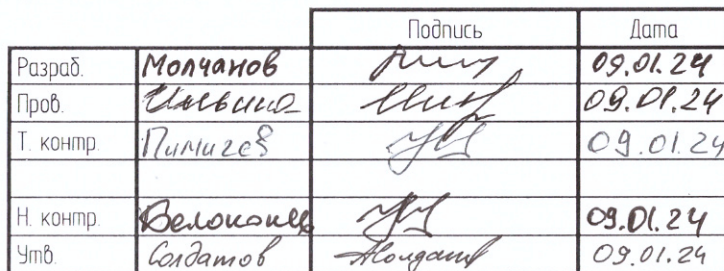 Подпись Дата
Разраб. Молчанов 09.01.24
Пров. Ильина 09.01.24
Т. контр. 09.01.24
Н. контр. 09.01.24
Утв. Солдатов 09.01.24